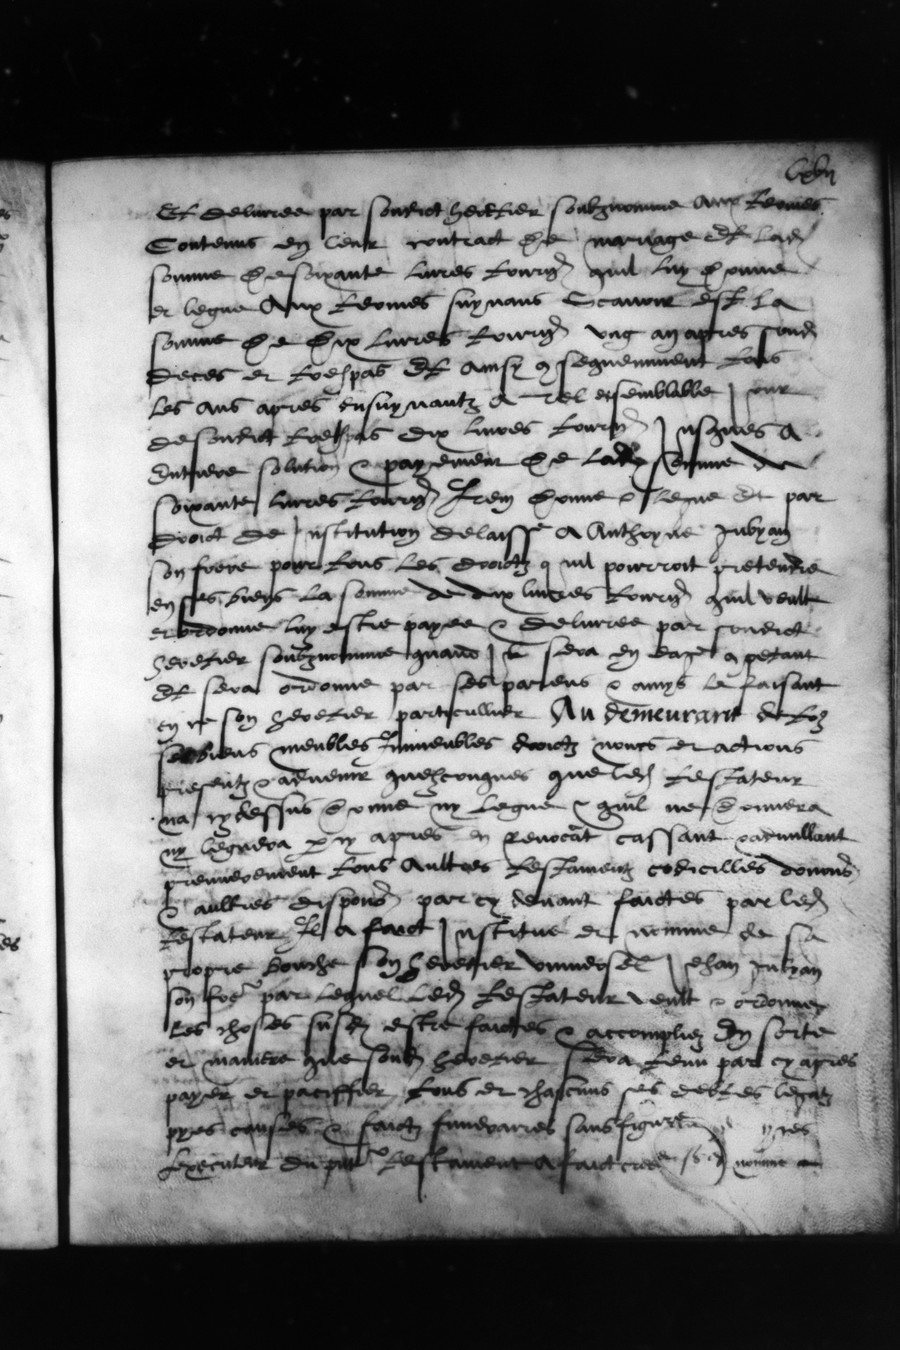 lxvii
Et delivree par sondict heretier soubznomme aux termes
Contenus en leur contract de mariage Et lad
somme de soixante livres tourn quil luy donne
et legue Aux termes suyvans Scavoir est La
somme de dix livres tourn ung an apres sond
deces et trespas Et ainsy consequemment tous
les ans apres ensuyvantz a tel et semblable jour
de sondict trespas dix livres tourn Jusques a
Entiere solution & payement de lad somme de
soixante livres tourn Item donne & legue et par
droict de Institution delaisse a Anthoyne
son frere pour tous les droictz quil pourroit pretendre
en ses biens la somme de dix livres tourn quil veult
et ordonne luy estre payee & delivree par sondict
heretier soubznomme quand il sera en eage competant
Et sera ordonne par ses parens & amys le faisant
en ce son heretier particullier Au demeurant de toz
ses biens meubles Immeubles droictz noms et actions
presentz & advenir quelzconques que led testateur
na cy dessus donne ny legue & quil ne donnera
ny leguera par cy apres en revocat cassant & adnullant
premierement tous Aultres testamentz codicilles donnons
& aultres dispons par cy devant faictes par led
testateur Il a faict Institue et nomme de sa
propre bouche son heretier universel Jehan
son frere par lequel led testateur veult & ordonne
les choses susd estre faictes & accomplies En sorte
et maniere que sond heretier sera tenu par cy apres
payer et paciffier tous et chascuns ses debtes legatz
pyes causes & faictz funeraires sans figure
Executeur du pnt testament a faict nomme